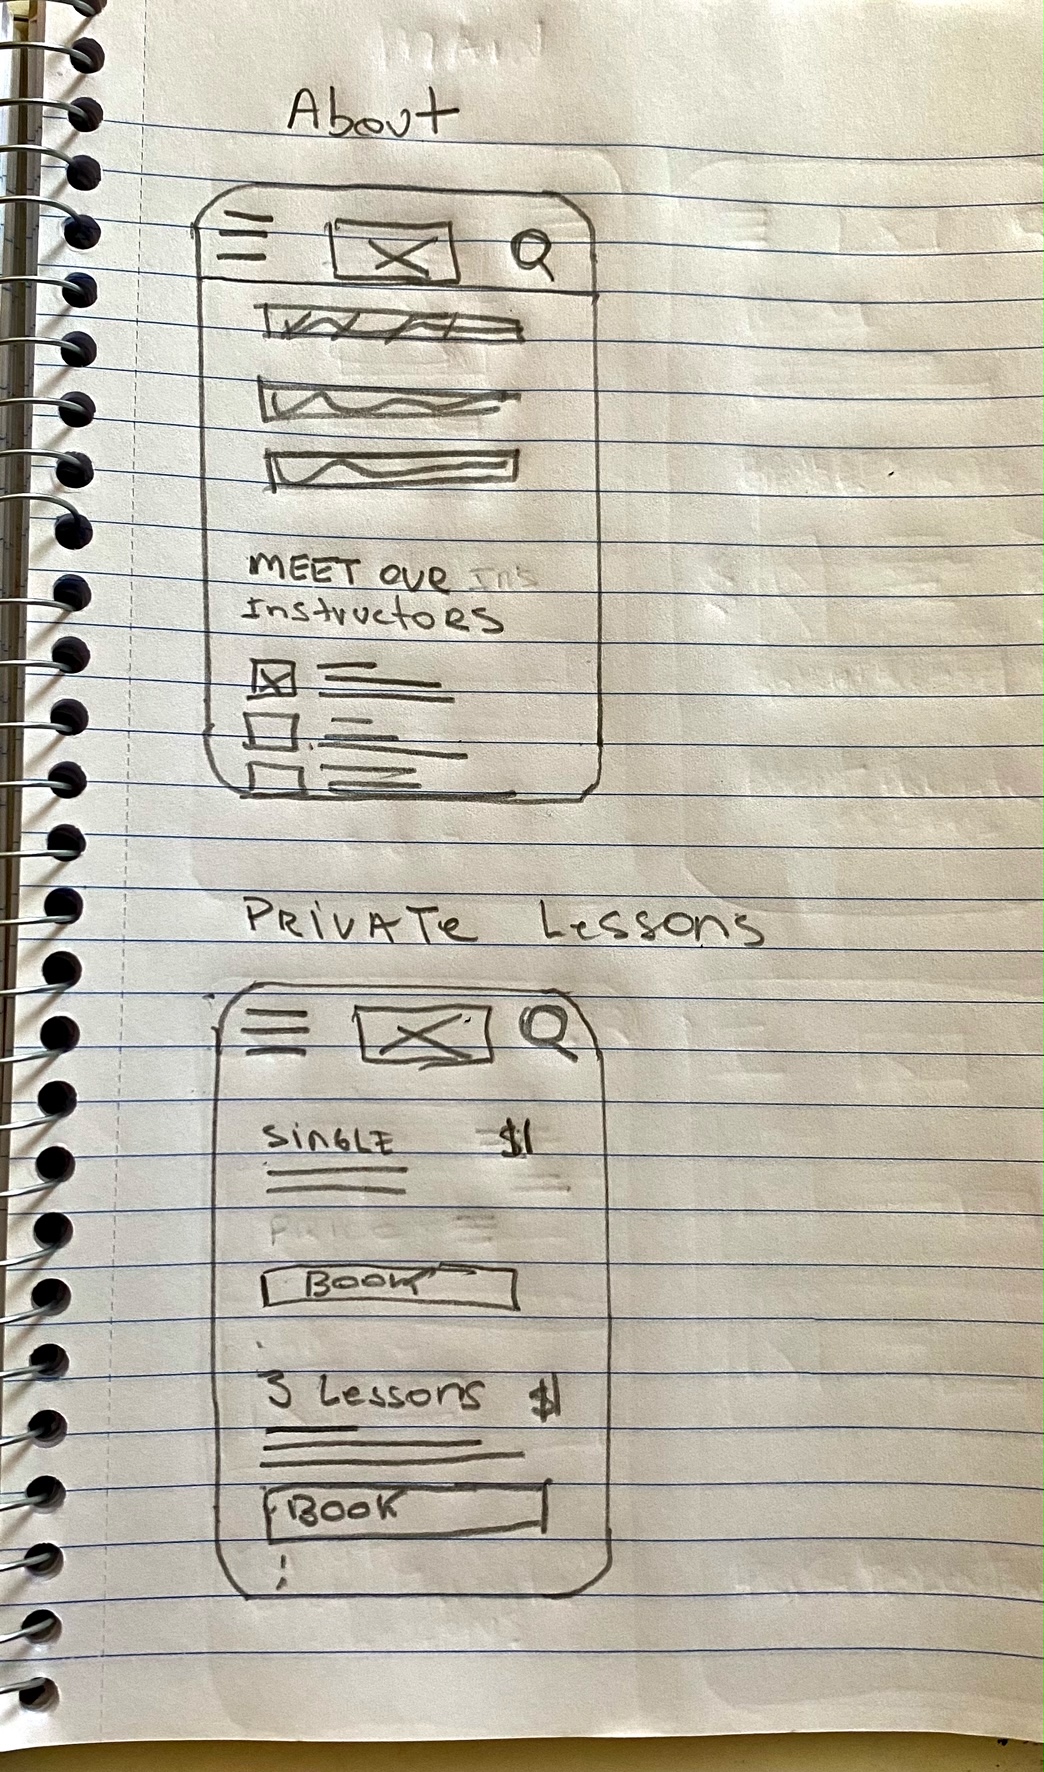 MAIN
About
MEET OUR Ins
Instructors
Private Lessons
Single $1
Price
Book
3 Lessons $1
Book